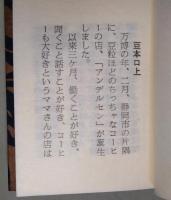 豆本口上
万博の年、二月、静岡市の片隅
に、豆粒ほどのちっちゃなコーヒ
ーの店、「アンデルセン」が誕生
しました。
以来三ヶ月、働くことが好き、
聞くこと話すことが好き、コーヒ
ーも大好きというママさんの店は